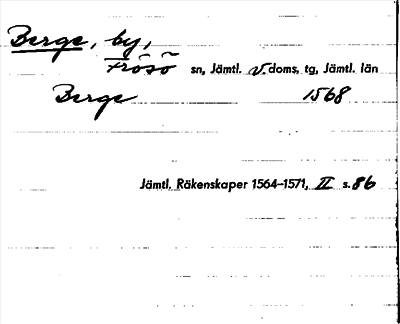 Berge, by,
Frösö sn, Jämtl. v. doms. tg, Jämtl. län
Berge 1568
Jämtl. Räkenskaper 1564–1571, II s. 86